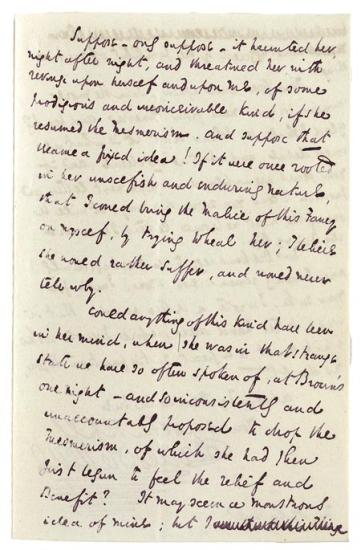 Suppose - only suppose - it haunted her,
night after night, and threatened her with
revenge upon herself and upon me, of some
prodigious and inconceivable kind, if she
resumed the Mesmerism - and suppose that
became a fixed idea! If it were once rooted
in her unselfish and enduring nature,
that I could bring the malice of this Fancy
on myself, by trying to heal her; I believe
she would rather suffer, and would never
tell why.
Could anything of this kind have been
in her mind, when she was in that strange
state we have so often spoken of, at Brown's
one night - and so inconsistently and
unaccountably proposed to drop the
Mesmerism, of which she had then
just begun to feel the relief and
Benefit? It may seem a monstrous
idea of mine; but I